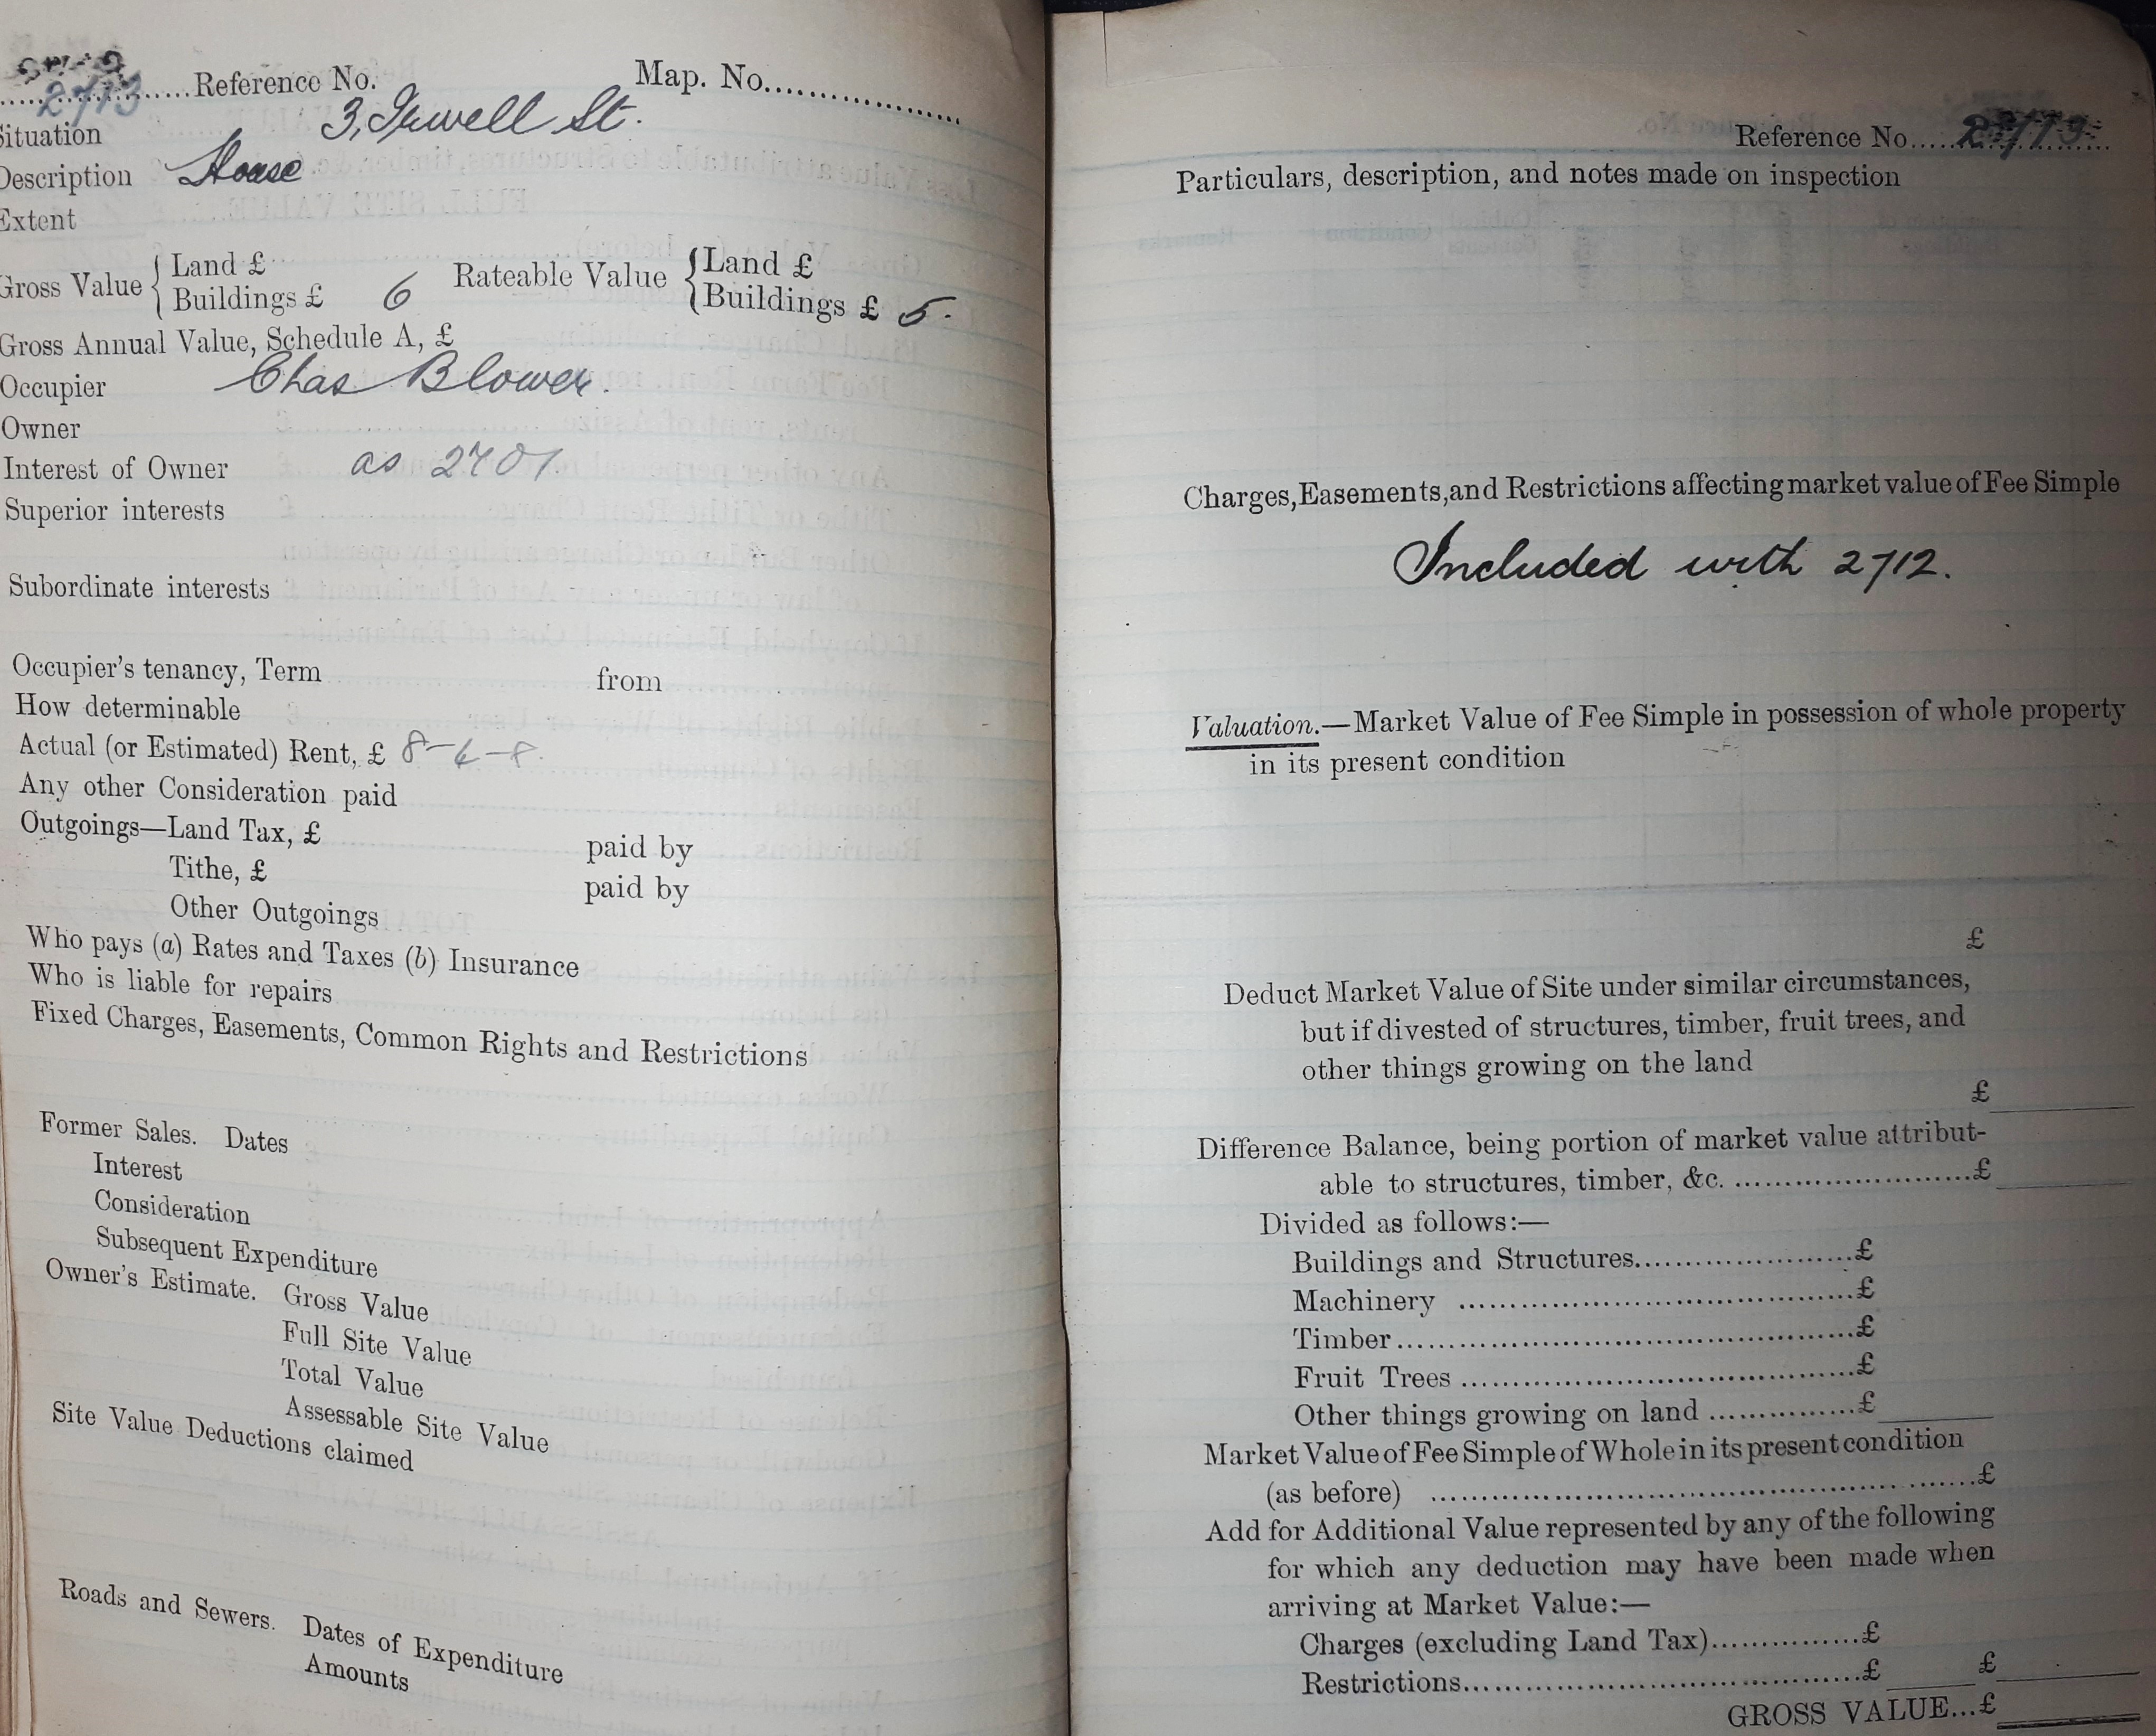 2713 Reference No. Map. No.
Situation 3, Irwell St.
Description House
Extent
Gross Value { Land £ Rateable Value { Land £
Buildings £ 6 Buildings £ 5.
Gross Annual Value, Schedule A, £
Occupier Chas Blower.
Owner
Interest of Owner as 2701
Superior interests
Subordinate interests
Occupier's tenancy, Term from
How determinable
Actual (or Estimated) Rent, £ 8-6-8.
Any other Consideration paid
Outgoings—Land Tax, £ paid by
Tithe, £ paid by
Other Outgoings
Who pays (a) Rates and Taxes (b) Insurance
Who is liable for repairs
Fixed Charges, Easements, Common Rights and Restrictions
Former Sales. Dates
Interest
Consideration
Subsequent Expenditure
Owner's Estimate. Gross Value
Full Site Value
Total Value
Assessable Site Value
Site Value Deductions claimed
Roads and Sewers. Dates of Expenditure
Amounts
Reference No. 2713
Particulars, description, and notes made on inspection
Charges, Easements, and Restrictions affecting market value of Fee Simple
Included with 2712.
Valuation.—Market Value of Fee Simple in possession of whole property
in its present condition
£
Deduct Market Value of Site under similar circumstances,
but if divested of structures, timber, fruit trees, and
other things growing on the land
£
Difference Balance, being portion of market value attribut-
able to structures, timber, &c. £
Divided as follows:—
Buildings and Structures £
Machinery £
Timber £
Fruit Trees £
Other things growing on land £
Market Value of Fee Simple of Whole in its present condition
(as before) £
Add for Additional Value represented by any of the following
for which any deduction may have been made when
arriving at Market Value:—
Charges (excluding Land Tax) £
Restrictions £ £
GROSS VALUE...£